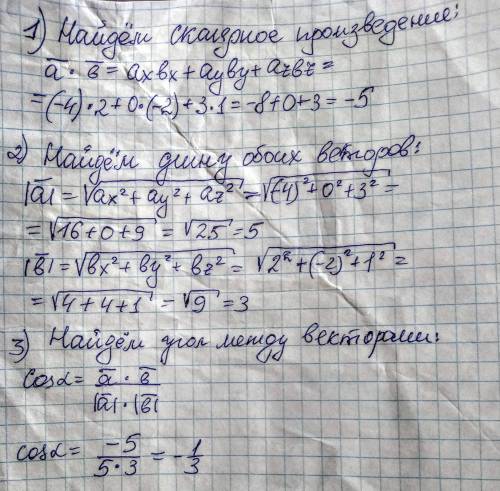 1) Найдём скалярное произведение:
a̅ · b̅ = axbx + ayby + azbz =
= (-4) · 2 + 0 · (-2) + 3 · 1 = -8 + 0 + 3 = -5
2) Найдём длину обоих векторов:
|a̅| = √(ax² + ay² + az²) = √((-4)² + 0² + 3²) =
= √(16 + 0 + 9) = √25 = 5
|b̅| = √(bx² + by² + bz²) = √(2² + (-2)² + 1²) =
= √(4 + 4 + 1) = √9 = 3
3) Найдём угол между векторами:
cosα = (a̅ · b̅) / (|a̅| · |b̅|)
cosα = -5 / (5 · 3) = -1/3